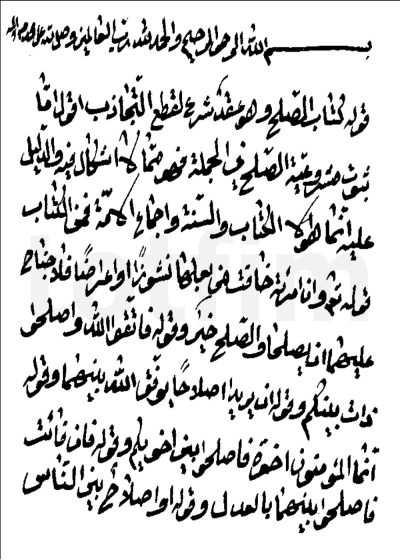 بسم الله الرحمن الرحيم والحمد لله رب العالمين وصلى الله على محمد وآله
قوله كتاب الصلح وهو عقد شرع لقطع التجاذب اقول اما
ثبوت مشروعية الصلح في الجملة فهو مما لا اشكال فيه والدليل
عليه انما هو الكتاب والسنة واجماع الامة فمن الكتاب
قوله تع وان امرئة خافت من بعلها نشوزا او اعراضا فلا جناح
عليهما ان يصلحا والصلح خير وقوله فاتقوا الله واصلحوا
ذات بينكم وقوله ان يريدا اصلاحا يوفق الله بينهما وقوله
انما المؤمنون اخوة فاصلحوا بين اخويكم وقوله فان فائت
فاصلحوا بينهما بالعدل وقوله او اصلاح بين الناس